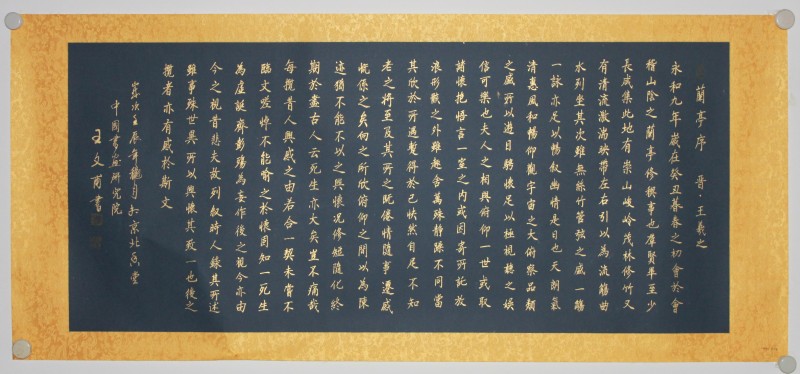 蘭亭序 晋·王羲之
永和九年歲在癸丑暮春之初會於會
稽山陰之蘭亭修禊事也群賢畢至少
長咸集此地有崇山峻岭茂林修竹又
有清流激湍映帶左右引以為流觴曲
水列坐其次雖無絲竹管弦之盛一觴
一詠亦足以暢叙幽情是日也天朗氣
清惠風和暢仰觀宇宙之大俯察品類
之盛所以遊目騁懷足以極視聽之娱
信可樂也夫人之相與俯仰一世或取
諸懷抱悟言一室之内或因寄所託放
浪形骸之外雖趣舍萬殊静躁不同當
其欣於所遇暫得於己快然自足不知
老之將至及其所之既倦情隨事遷感
慨係之矣向之所欣俯仰之間以為陳
迹猶不能不以之興懷况修短隨化終
期於盡古人云死生亦大矣豈不痛哉
每攬昔人興感之由若合一契未嘗不
臨文嗟悼不能喻之於懷固知一死生
為虚誕齊彭殤為妄作後之視今亦由
今之視昔悲夫故列叙時人録其所述
雖事殊世異所以興懷其致一也後之
攬者亦有感於斯文
歲次壬辰年月於京北堂
中國書畫研究院
王文甫書